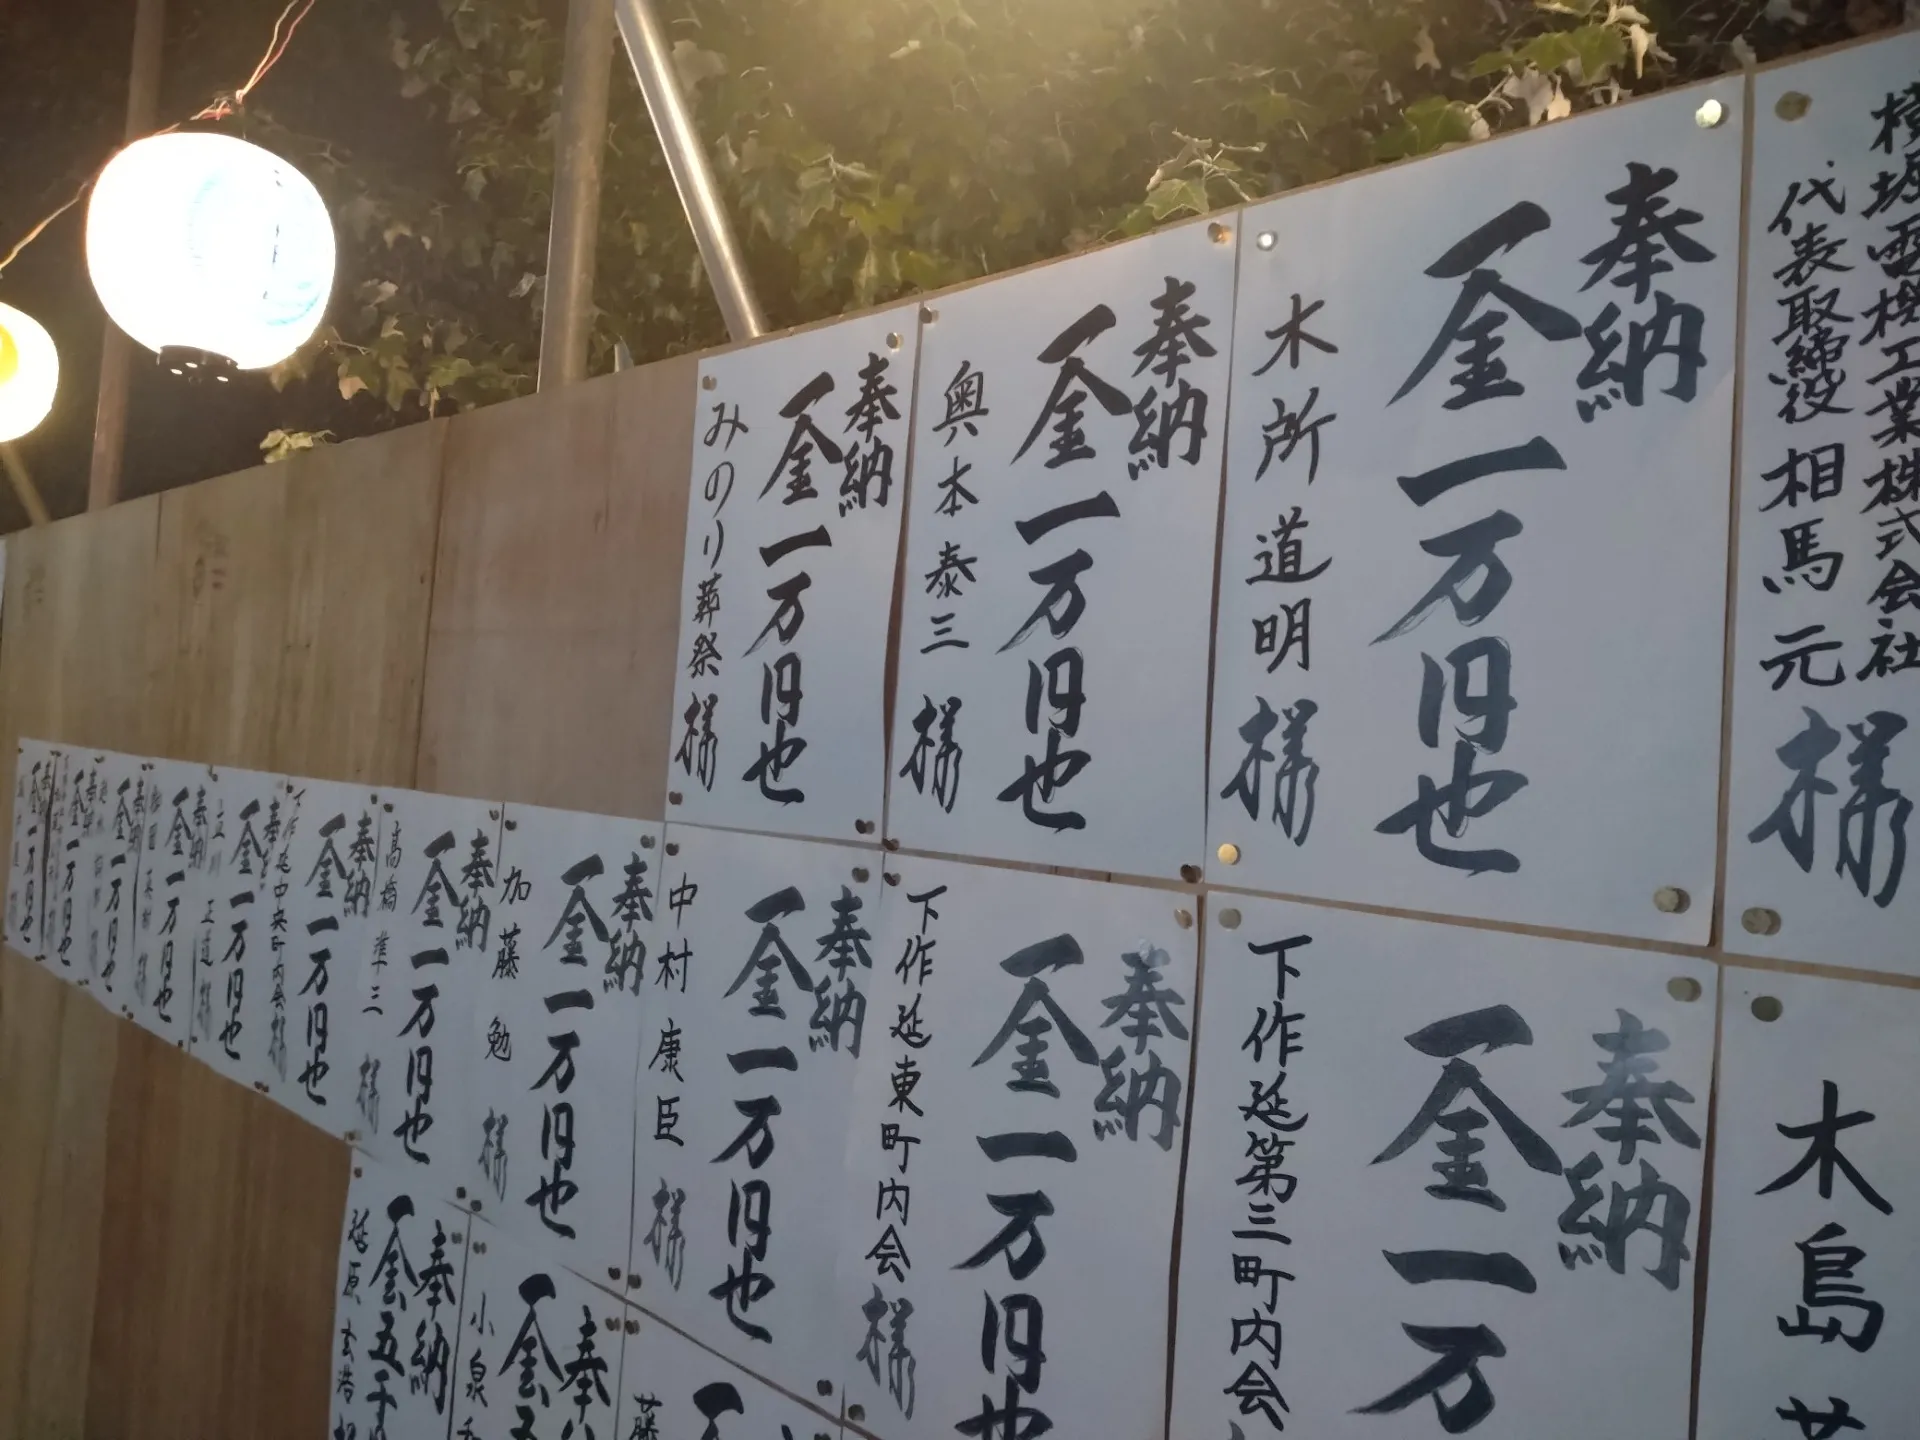 横堀電機工業株式会社
代表取締役 相馬 元 様
奉納
金一万円也
木所道明様
奉納
金一万円也
奥本泰三様
奉納
金一万円也
みのり葬祭様
木島
奉納
金一万
下作延第三町内会
奉納
金一万円也
下作延東町内会様
奉納
金一万円也
中村康臣様
奉納
金一万円也
加藤勉様
奉納
金一万円也
高橋準三様
奉納
金一万円也
下作延中央町内会様
奉納
金一万円也
立川正道様
奉納
金一万円也
奉納
金一万円也
奉納
金一万円也
奉納
金一万円也
藤
奉
金五
小泉
奉納
金五千